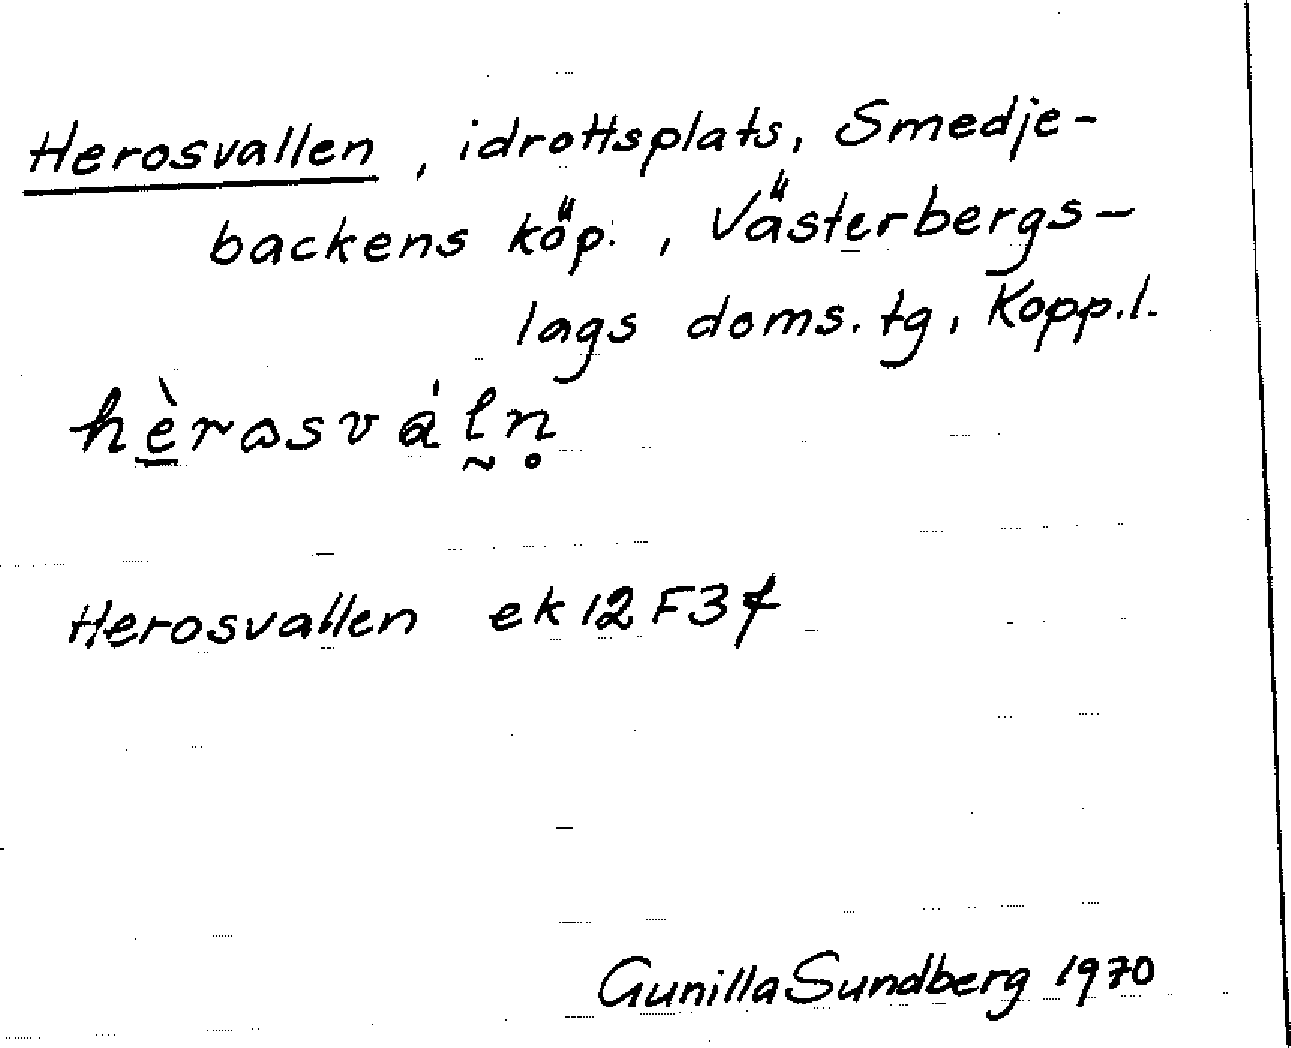 Herosvallen, idrottsplats, Smedje-
backens köp., Västerbergs-
lags doms. tg, Kopp.l.
hèrɷsválṇ̥
Herosvallen ek 12 F3f
Gunilla Sundberg 1970